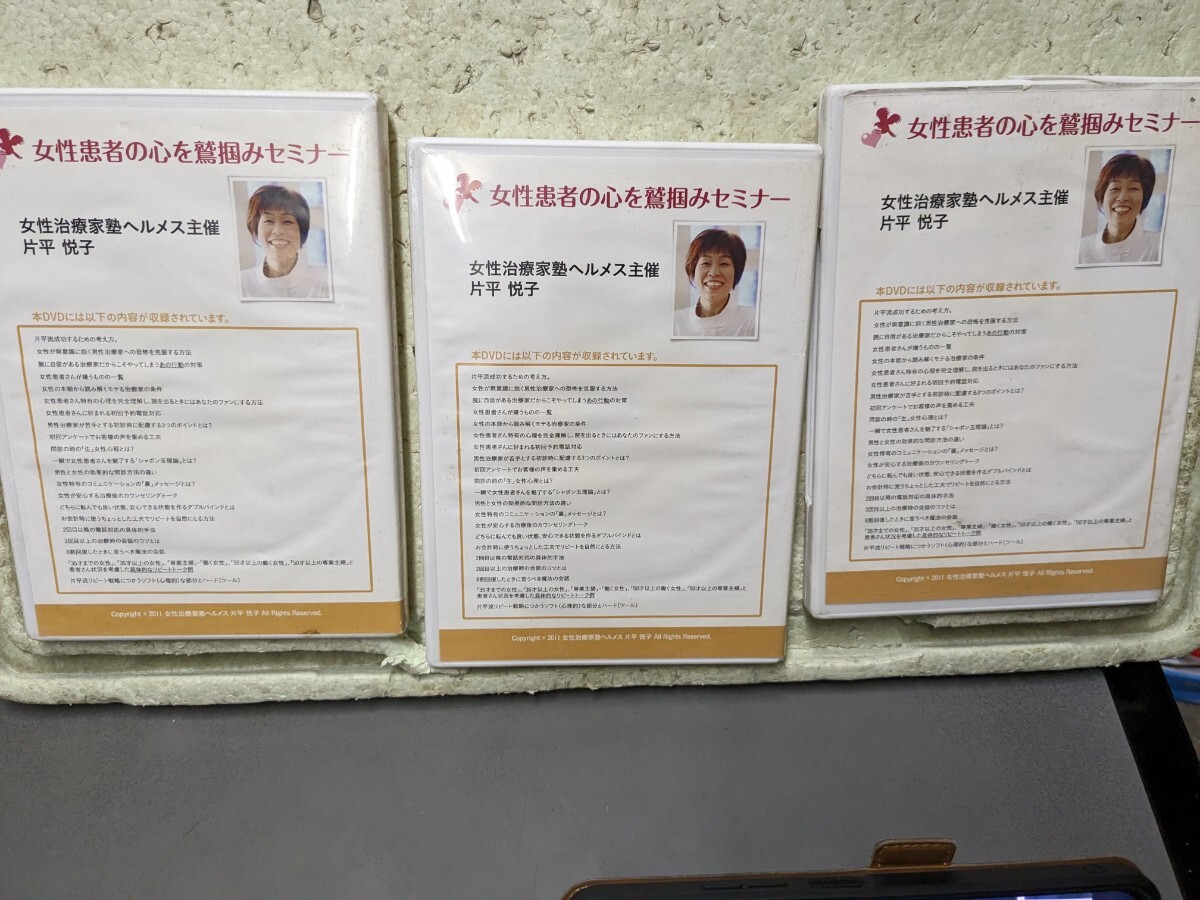 女性患者の心を鷲掴みセミナー
女性治療家塾ヘルメス主催
片平 悦子
本DVDには以下の内容が収録されています。
片平流成功するための考え方。
女性が無意識に抱く男性治療家への恐怖を克服する方法
腕に自信がある治療家だからこそやってしまうあの行動の対策
女性患者さんが嫌うものの一覧
女性の本能から読み解くモテる治療家の条件
女性患者さん特有の心理を完全理解し、院を出るときにはあなたのファンにする方法
女性患者さんに好まれる初回予約電話対応
男性治療家が苦手とする初診時に配慮する3つのポイントとは?
初回アンケートでお客様の声を集める工夫
問診の時の「生」女性心理とは?
一瞬で女性患者さんを魅了する「シャボン玉理論」とは?
男性と女性の効果的な問診方法の違い
女性特有のコミュニケーションの「裏」メッセージとは?
女性が安心する治療後のカウンセリングトーク
どちらに転んでも良い状態、安心できる状態を作るダブルバインドとは
お会計時に使うちょっとした工夫でリピートを自然にとる方法
2回目以降の電話対応の具体的手法
2回目以上の治療時の会話のコツとは
8割回復したときに言うべき魔法の会話
「35才までの女性」、「35才以上の女性」、「専業主婦」・「働く女性」、「50才以上の働く女性」、「50才以上の専業主婦」と
患者さん状況を考慮した具体的なリピートトーク例
片平流リピート戦略につかうソフト(心理的)な部分とハード(ツール)
Copyright © 2011 女性治療家塾ヘルメス 片平 悦子 All Rights Reserved.
女性患者の心を鷲掴みセミナー
女性治療家塾ヘルメス主催
片平 悦子
本DVDには以下の内容が収録されています。
片平流成功するための考え方。
女性が無意識に抱く男性治療家への恐怖を克服する方法
腕に自信がある治療家だからこそやってしまうあの行動の対策
女性患者さんが嫌うものの一覧
女性の本能から読み解くモテる治療家の条件
女性患者さん特有の心理を完全理解し、院を出るときにはあなたのファンにする方法
女性患者さんに好まれる初回予約電話対応
男性治療家が苦手とする初診時に配慮する3つのポイントとは?
初回アンケートでお客様の声を集める工夫
問診の時の「生」女性心理とは?
一瞬で女性患者さんを魅了する「シャボン玉理論」とは?
男性と女性の効果的な問診方法の違い
女性特有のコミュニケーションの「裏」メッセージとは?
女性が安心する治療後のカウンセリングトーク
どちらに転んでも良い状態、安心できる状態を作るダブルバインドとは
お会計時に使うちょっとした工夫でリピートを自然にとる方法
2回目以降の電話対応の具体的手法
2回目以上の治療時の会話のコツとは
8割回復したときに言うべき魔法の会話
「35才までの女性」、「35才以上の女性」、「専業主婦」・「働く女性」、「50才以上の働く女性」、「50才以上の専業主婦」と
患者さん状況を考慮した具体的なリピートトーク例
片平流リピート戦略につかうソフト(心理的)な部分とハード(ツール)
Copyright © 2011 女性治療家塾ヘルメス 片平 悦子 All Rights Reserved.
女性患者の心を鷲掴みセミナー
女性治療家塾ヘルメス主催
片平 悦子
本DVDには以下の内容が収録されています。
片平流成功するための考え方。
女性が無意識に抱く男性治療家への恐怖を克服する方法
腕に自信がある治療家だからこそやってしまうあの行動の対策
女性患者さんが嫌うものの一覧
女性の本能から読み解くモテる治療家の条件
女性患者さん特有の心理を完全理解し、院を出るときにはあなたのファンにする方法
女性患者さんに好まれる初回予約電話対応
男性治療家が苦手とする初診時に配慮する3つのポイントとは?
初回アンケートでお客様の声を集める工夫
問診の時の「生」女性心理とは?
一瞬で女性患者さんを魅了する「シャボン玉理論」とは?
男性と女性の効果的な問診方法の違い
女性特有のコミュニケーションの「裏」メッセージとは?
女性が安心する治療後のカウンセリングトーク
どちらに転んでも良い状態、安心できる状態を作るダブルバインドとは
お会計時に使うちょっとした工夫でリピートを自然にとる方法
2回目以降の電話対応の具体的手法
2回目以上の治療時の会話のコツとは
8割回復したときに言うべき魔法の会話
「35才までの女性」、「35才以上の女性」、「専業主婦」・「働く女性」、「50才以上の働く女性」、「50才以上の専業主婦」と
患者さん状況を考慮した具体的なリピートトーク例
片平流リピート戦略につかうソフト(心理的)な部分とハード(ツール)
Copyright © 2011 女性治療家塾ヘルメス 片平 悦子 All Rights Reserved.